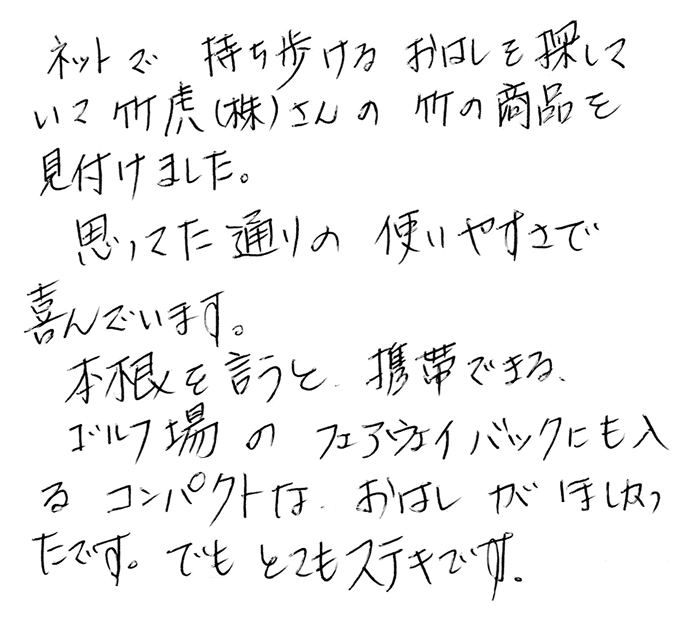 ネットで 持ち歩ける おはしを探して
いて 竹虎(株)さんの 竹の商品を
見付けました。
思ってた通りの 使いやすさで
喜んでいます。
本根を言うと、携帯できる、
ゴルフ場 の フェアウェイバックにも入
る コンパクトな おはし が ほしかっ
たです。でも とてもステキです。